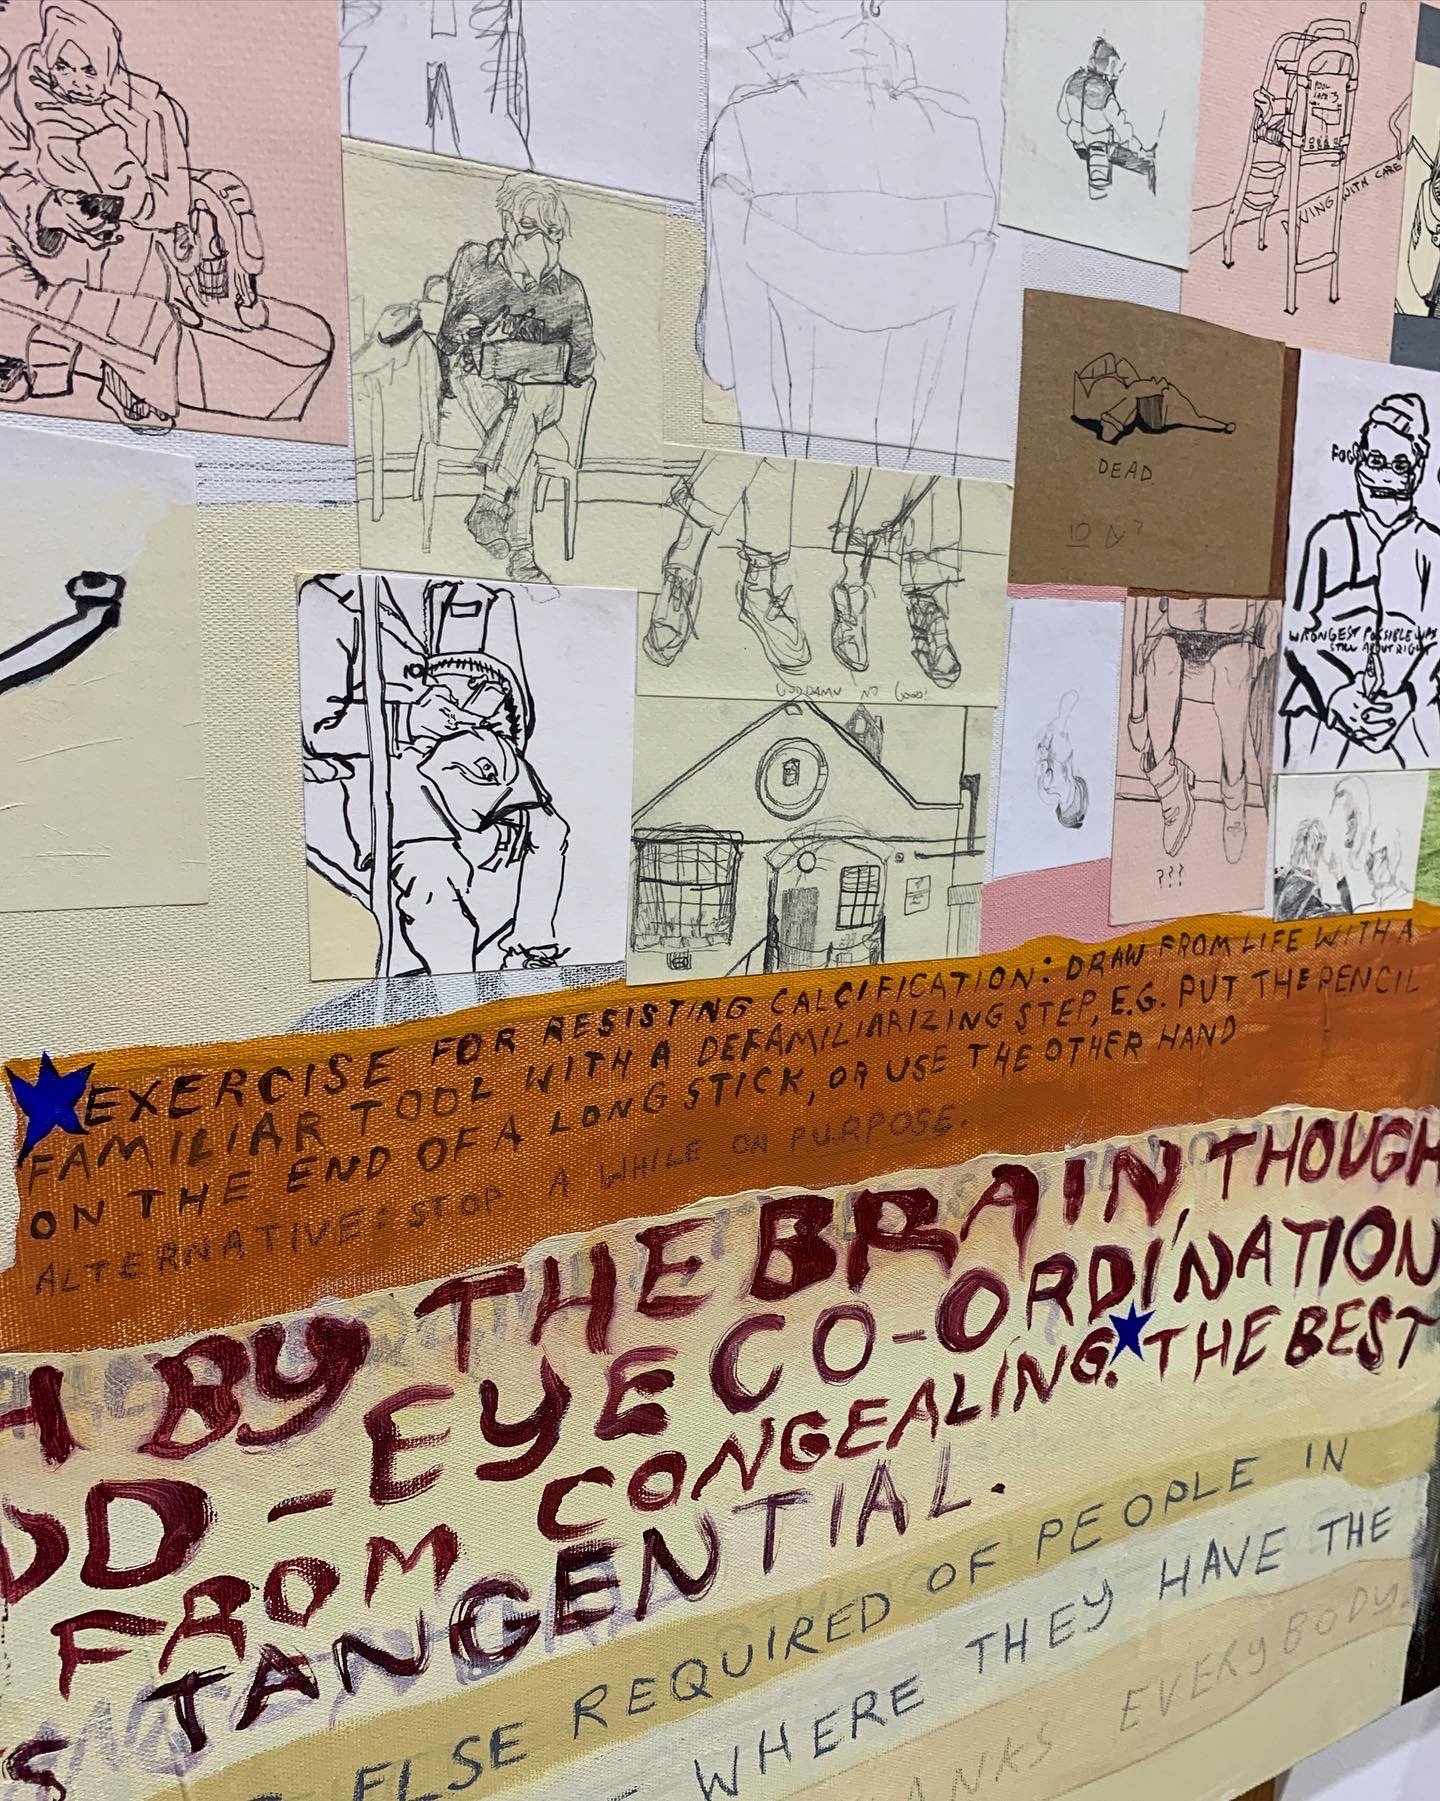 POOL
WITH CARE
DEAD
FOGS
WRONGEST POSSIBLE WAS
STILL ABOUT RIGHT
GODDAMN NO GOOD!
???
EXERCISE FOR RESISTING CALCIFICATION: DRAW FROM LIFE WITH A
FAMILIAR TOOL WITH A DEFAMILIARIZING STEP, E.G. PUT THE PENCIL
ON THE END OF A LONG STICK, OR USE THE OTHER HAND
ALTERNATIVE: STOP A WHILE ON PURPOSE.
H BY THE BRAIN, THOUGH
D-EYE CO-ORDINATION
FROM CONGEALING. THE BEST
S TANGENTIAL.
ELSE REQUIRED OF PEOPLE IN
WHERE THEY HAVE THE
ANKS EVERYBODY.